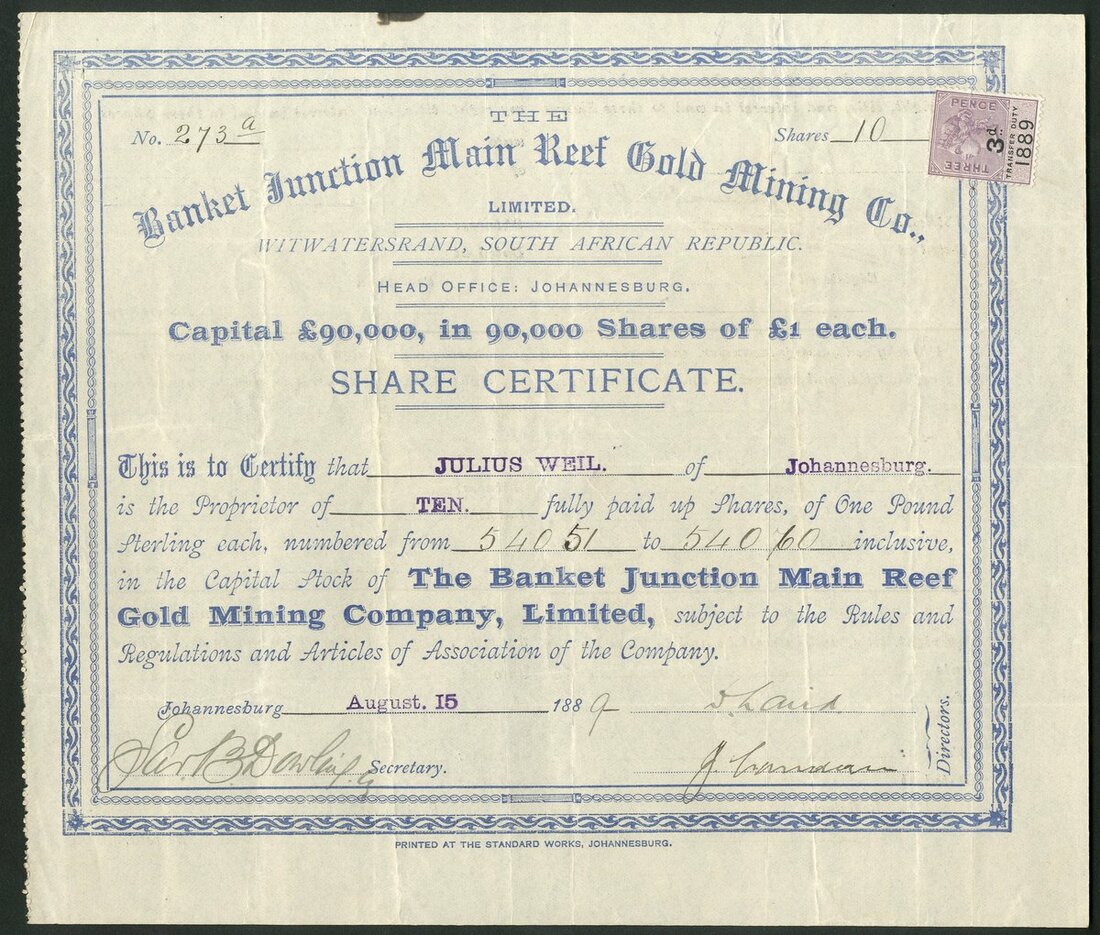 THE
No. 273 a
Shares 10
Banket Junction Main Reef Gold Mining Co.,
LIMITED.
WITWATERSRAND, SOUTH AFRICAN REPUBLIC.
HEAD OFFICE: JOHANNESBURG.
Capital £90,000, in 90,000 Shares of £1 each.
SHARE CERTIFICATE.
This is to Certify that JULIUS WEIL. of Johannesburg.
is the Proprietor of TEN. fully paid up Shares, of One Pound
Sterling each, numbered from 54051 to 54060 inclusive,
in the Capital Stock of The Banket Junction Main Reef
Gold Mining Company, Limited, subject to the Rules and
Regulations and Articles of Association of the Company.
Johannesburg August. 15 1889
D. Laird
Secretary.
Directors.
PRINTED AT THE STANDARD WORKS, JOHANNESBURG.
PENCE
THREE
3d.
TRANSFER DUTY
1889